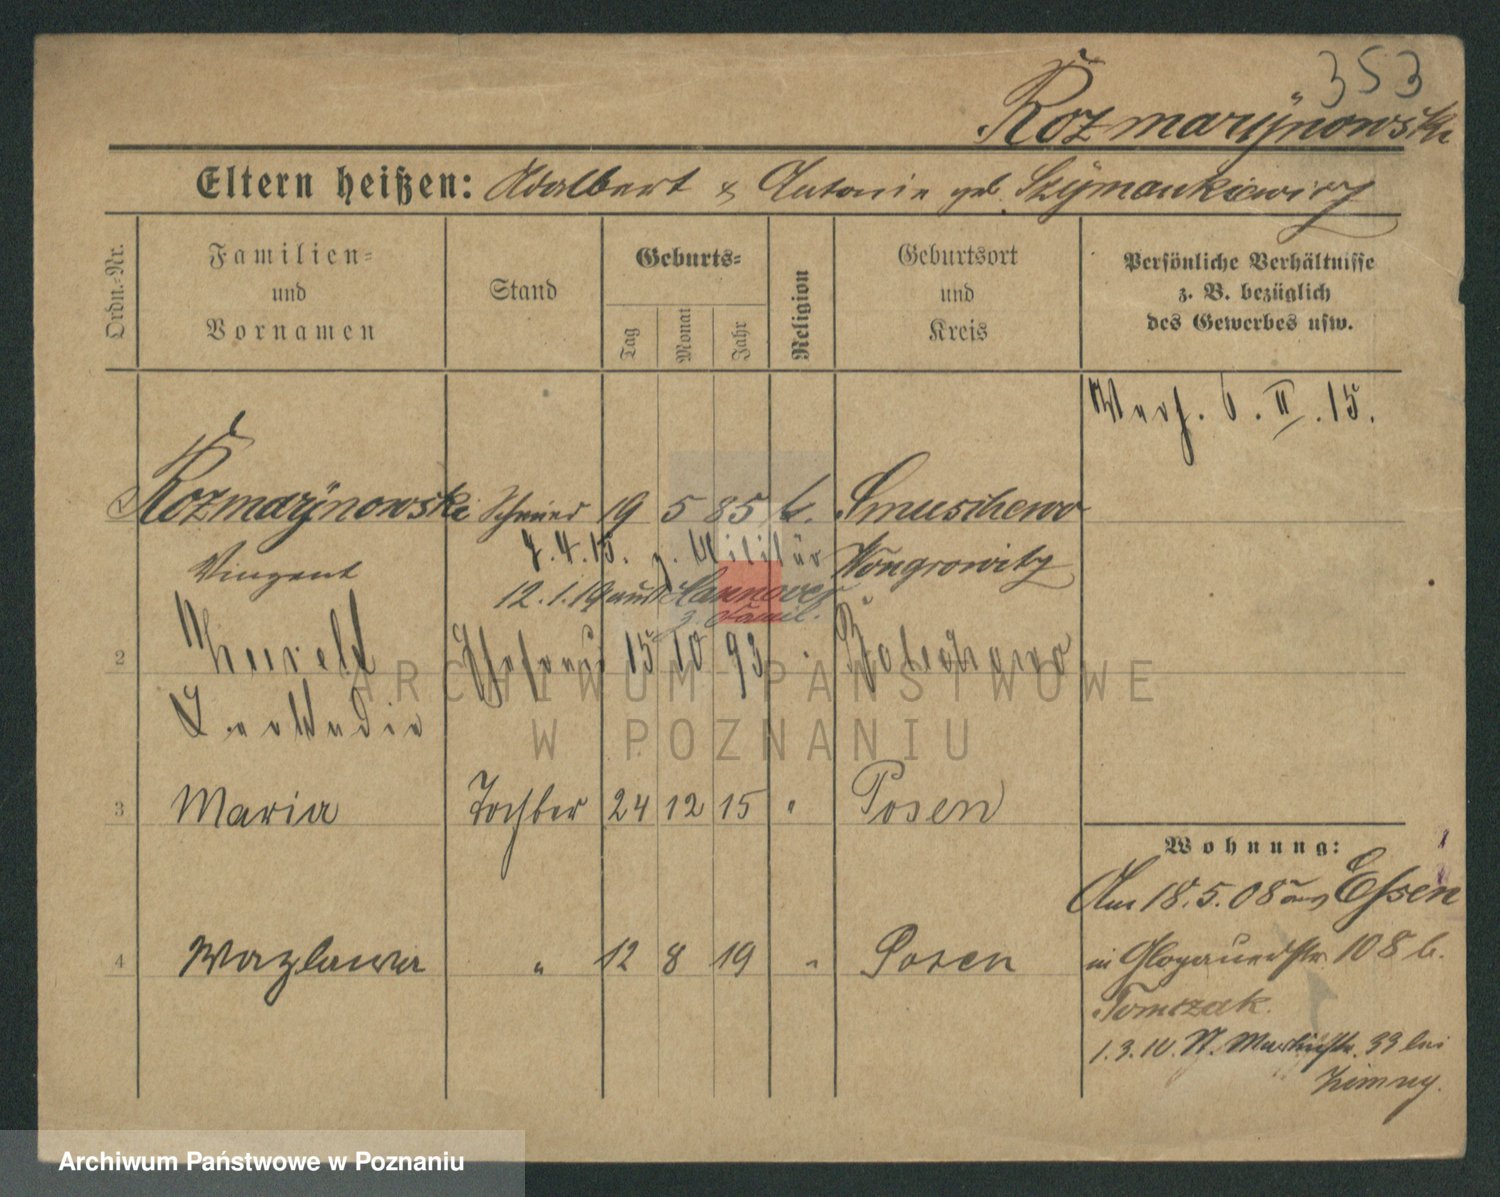 353
Rozmarÿnowski
Eltern heißen: Adalbert & Antonie geb. Szÿmankiewicz
Ordn.-Nr.
Familien-
und
Vornamen
Stand
Geburts-
Tag
Monat
Jahr
Religion
Geburtsort
und
Kreis
Persönliche Verhältnisse
z. B. bezüglich
des Gewerbes usw.
6. II. 15.
Rozmarÿnowski 19 5 85 k. Smuschewo
7.4.15. z. Militär Wongrowitz
Vinzent
12.1.19 aus Hannover
z. Famil.
2 Ehefrau 15 10 93
Leokadia
3 Maria Tochter 24 12 15 " Posen
Wohnung:
Am 18.5.08 aus Essen
4 Wazlawa " 12 8 19 " Posen
in Glogauerstr. 108 b.
Tomczak.
1.3.10. St. Martinstr. 33 bei
Zimny.
ARCHIWUM PAŃSTWOWE
W POZNANIU
Archiwum Państwowe w Poznaniu